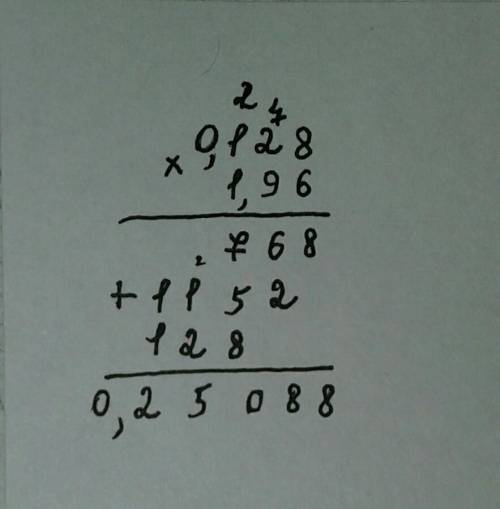 2 4
0,128
× 1,96
2
768
+ 1152
128
0,25088